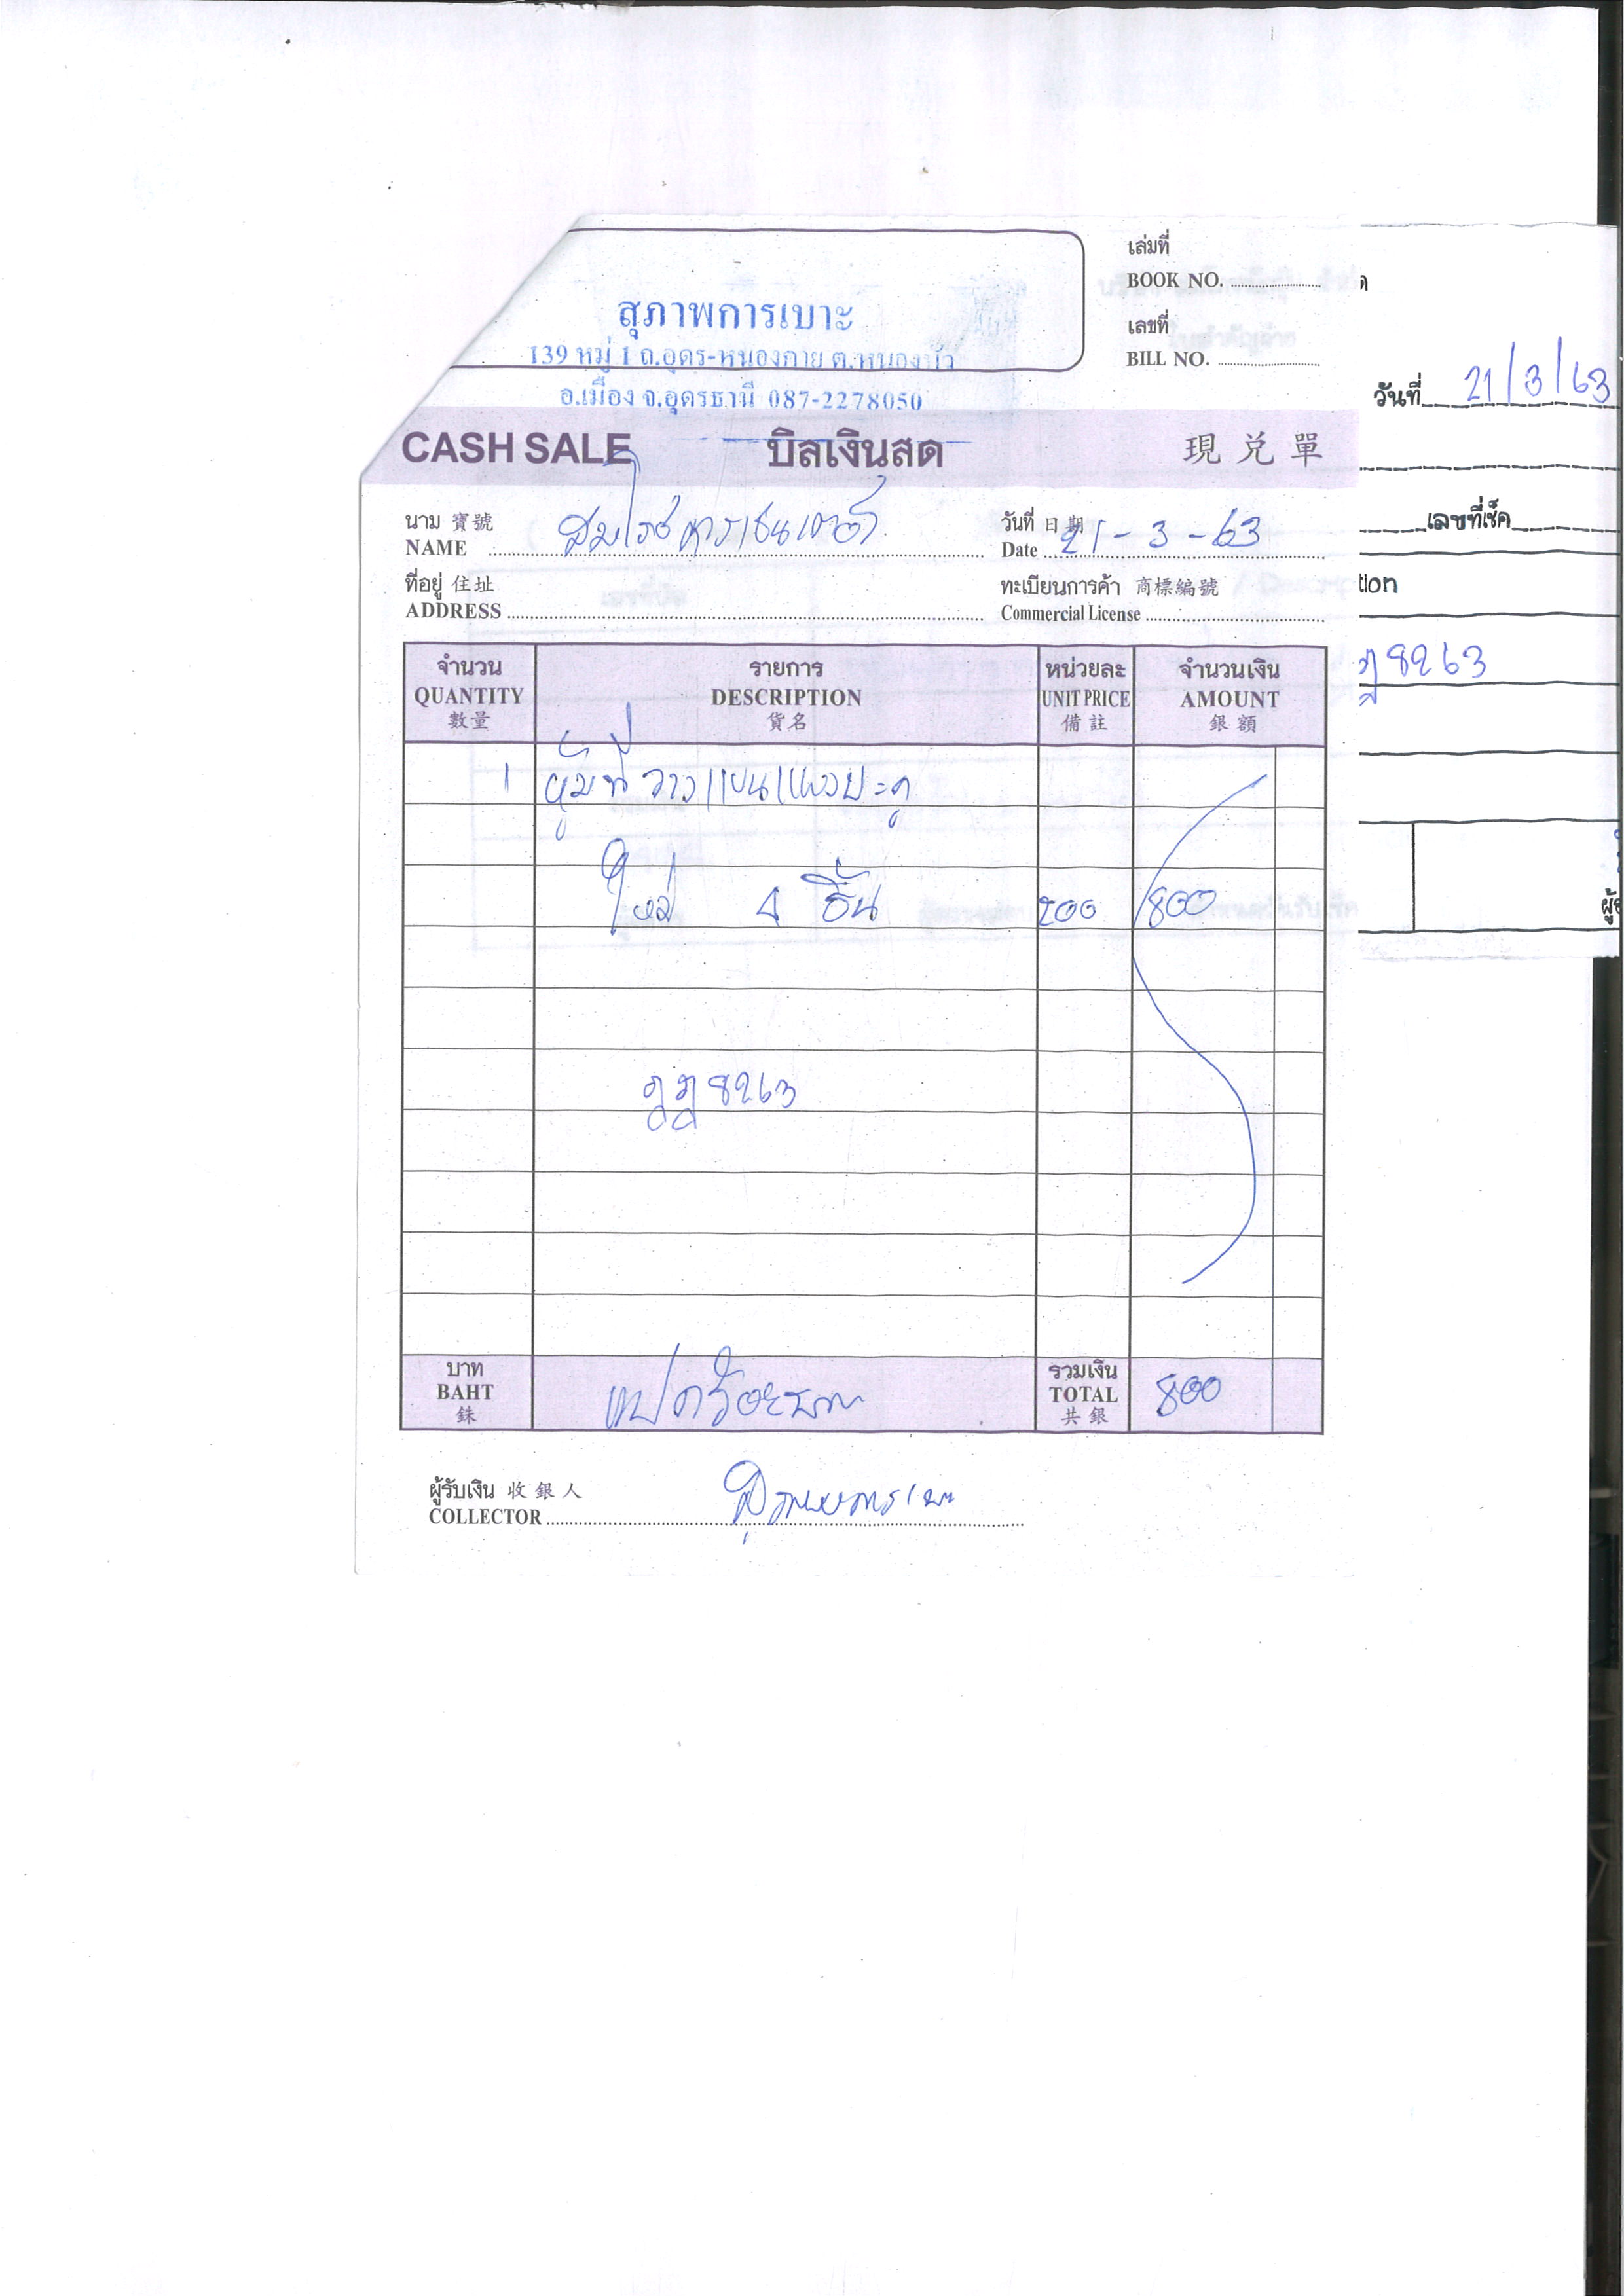 เล่มที่
BOOK NO.
เลขที่
BILL NO.
สุภาพการเบาะ
139 หมู่ 1 ถ.อุดร-หนองคาย ต.หนองบัว
อ.เมือง จ.อุดรธานี 087-2278050
CASH SALE บิลเงินสด 現兌單
นาม 寶號
NAME
วันที่ 日期
Date 21-3-63
ที่อยู่ 住址
ADDRESS
ทะเบียนการค้า 商標編號
Commercial License
จำนวน รายการ หน่วยละ จำนวนเงิน
QUANTITY DESCRIPTION UNIT PRICE AMOUNT
數量 貨名 備註 銀額
1 หุ้มที่วางแขนแผงประตู
ใหม่ 4 ชิ้น 200 800
ฎฎ 8263
บาท รวมเงิน
BAHT แปดร้อยบาท TOTAL 800
銖 共銀
ผู้รับเงิน 收銀人
COLLECTOR สุภาพการเบาะ
วันที่ 21/3/63
เลขที่เช็ค
tion
ฎ 8263